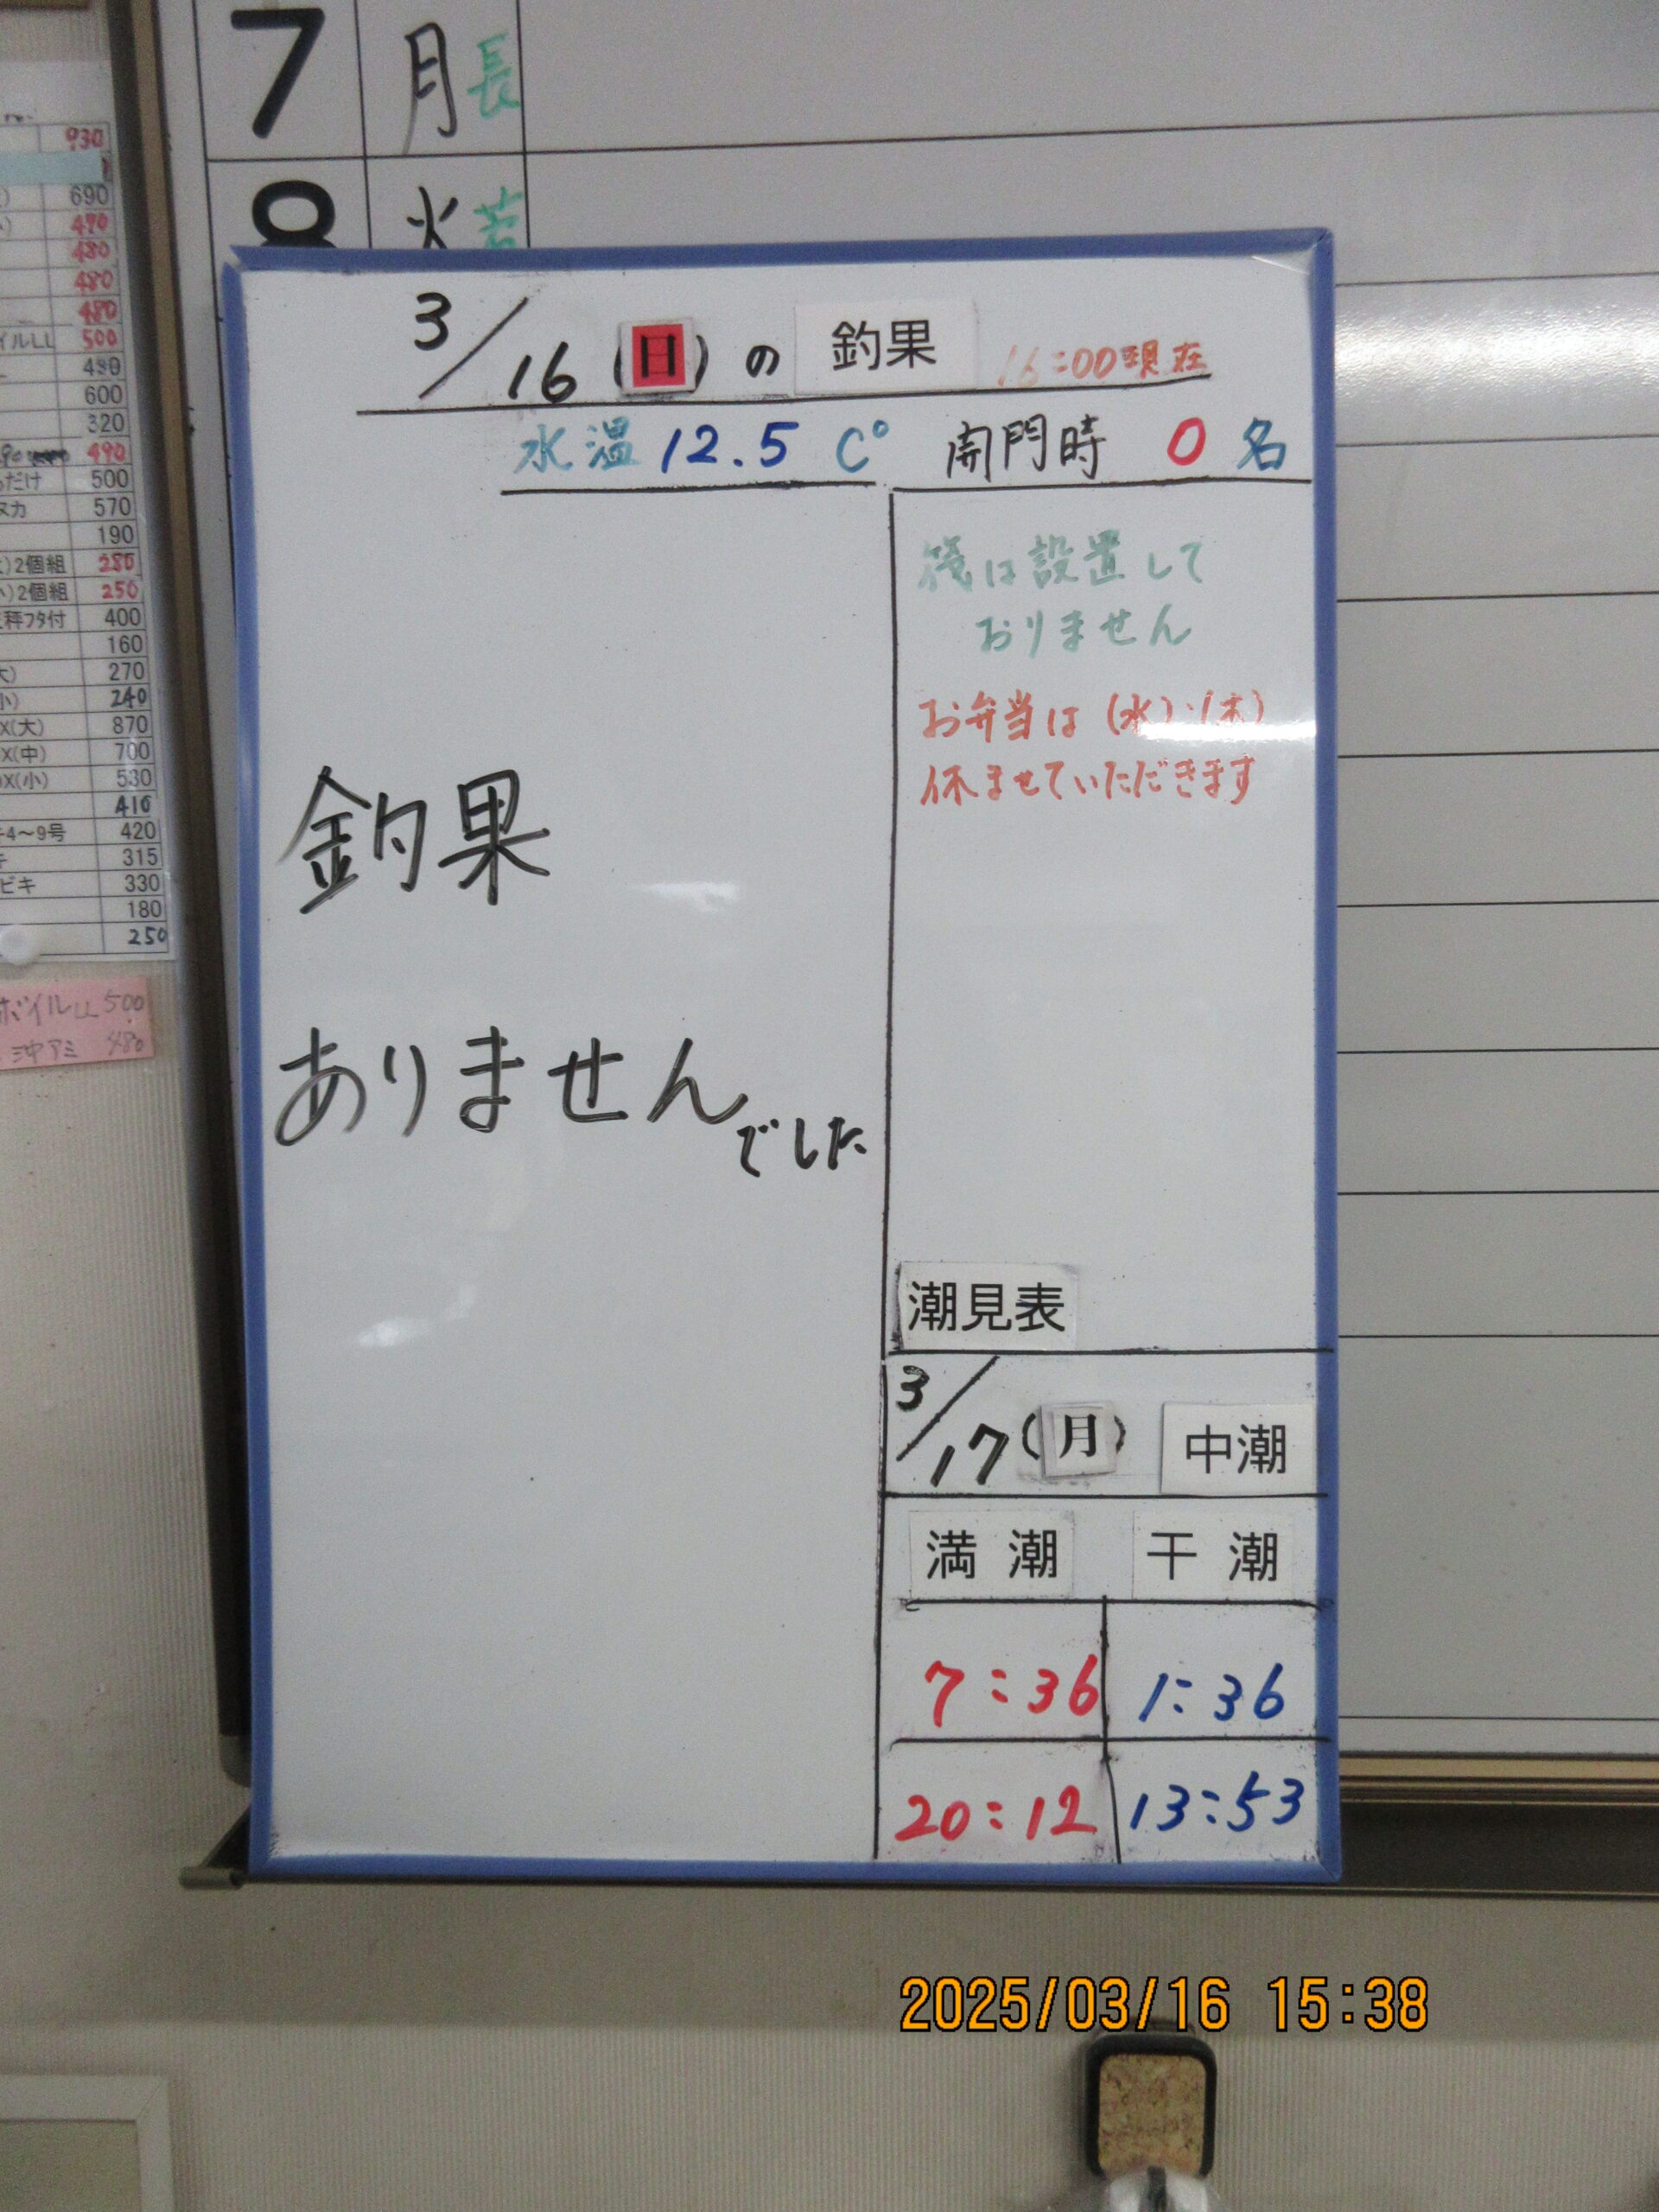 7 月 長
8 火 若
3/16 (日) の 釣果 16:00現在
水温 12.5 C° 開門時 0 名
筏は設置して
おりません
お弁当は (水)・(木)
休ませていただきます
釣果
ありませんでした
潮見表
3/17 (月) 中潮
満潮 干潮
7:36 1:36
20:12 13:53
930
690
470
480
480
480
イルLL 500
490
600
320
490
だけ 500
ヌカ 570
190
2個組 280
2個組 250
秤フタ付 400
160
大) 270
小) 240
X(大) 870
X(中) 700
X(小) 530
410
4～9号 420
315
ビキ 330
180
250
ボイルLL 500
沖アミ 480
2025/03/16 15:38